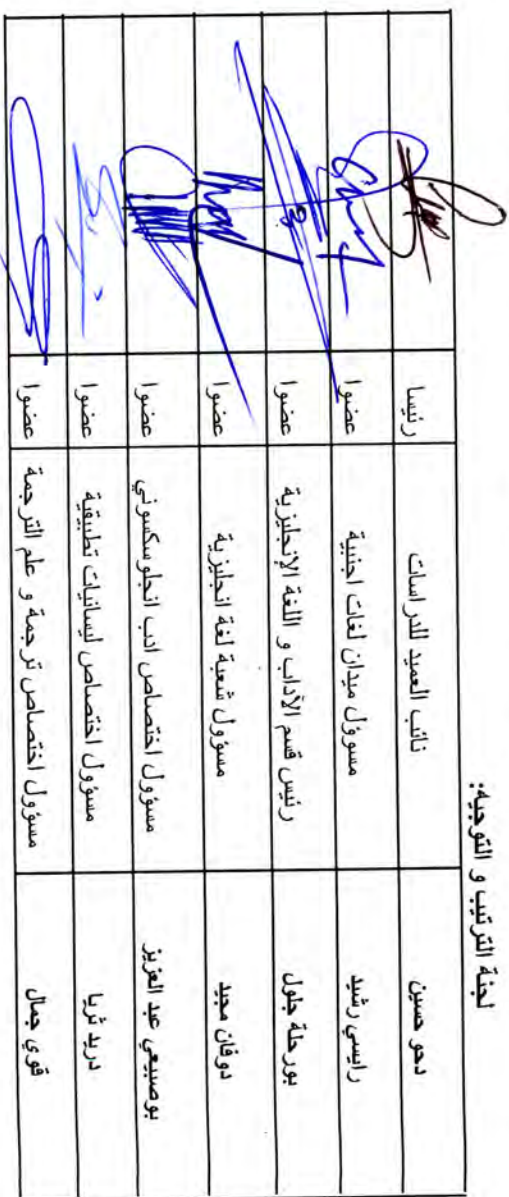 لجنة الترتيب و التوجيه:
دحو حسين نائب العميد للدراسات رئيسا
رايسي رشيد مسؤول ميدان لغات اجنبية عضوا
بورحلة جلول رئيس قسم الأداب و اللغة الإنجليزية عضوا
دوفان مجيد مسؤول شعبة لغة انجليزية عضوا
بوصبيعي عبد العزيز مسؤول اختصاص ادب انجلوسكسوني عضوا
دريد ثريا مسؤول اختصاص ليسانيات تطبيقية عضوا
قوي جمال مسؤول اختصاص ترجمة و علم الترجمة عضوا